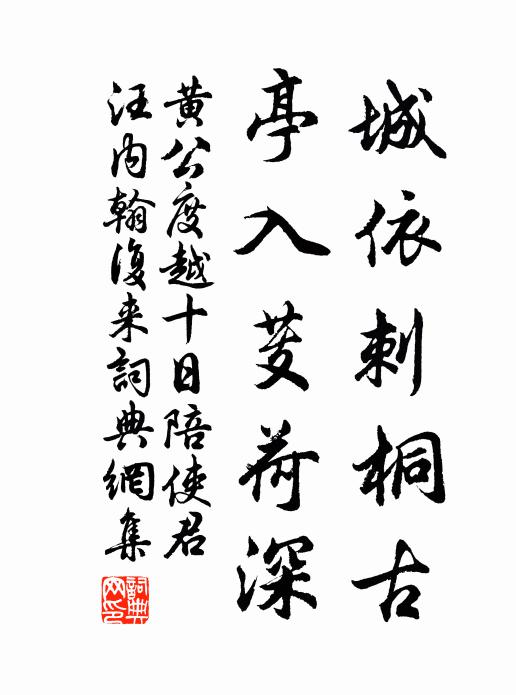 城依刺桐古
亭入芰荷深
黄公度越十日陪使君
汪内翰復来詞典網集